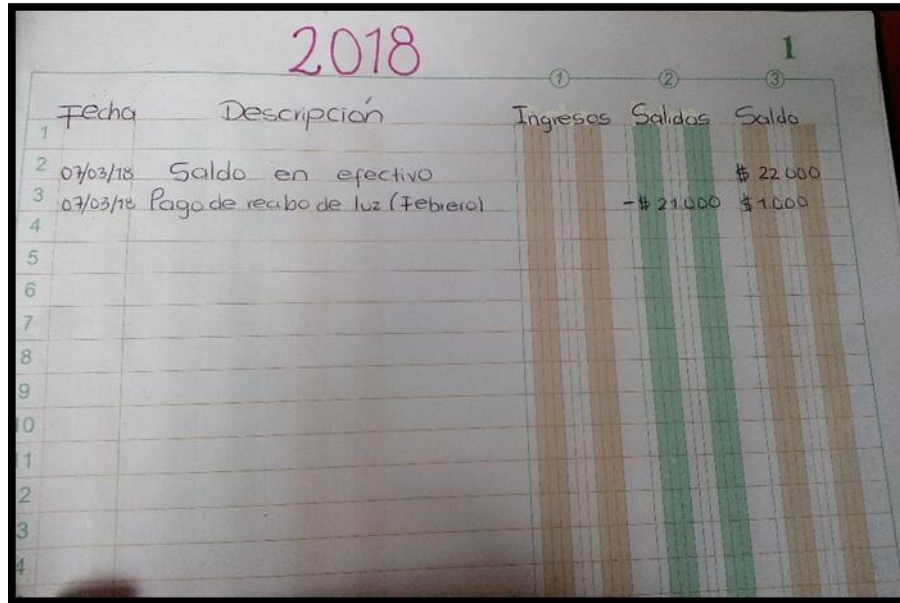 2018
1
1 2 3
Fecha Descripción Ingresos Salidas Saldo
1
2 07/03/18 Saldo en efectivo $ 22 000
3 07/03/18 Pago de recibo de luz (Febrero) -$ 21.000 $ 1 000
4
5
6
7
8
9
10
1
2
3
4